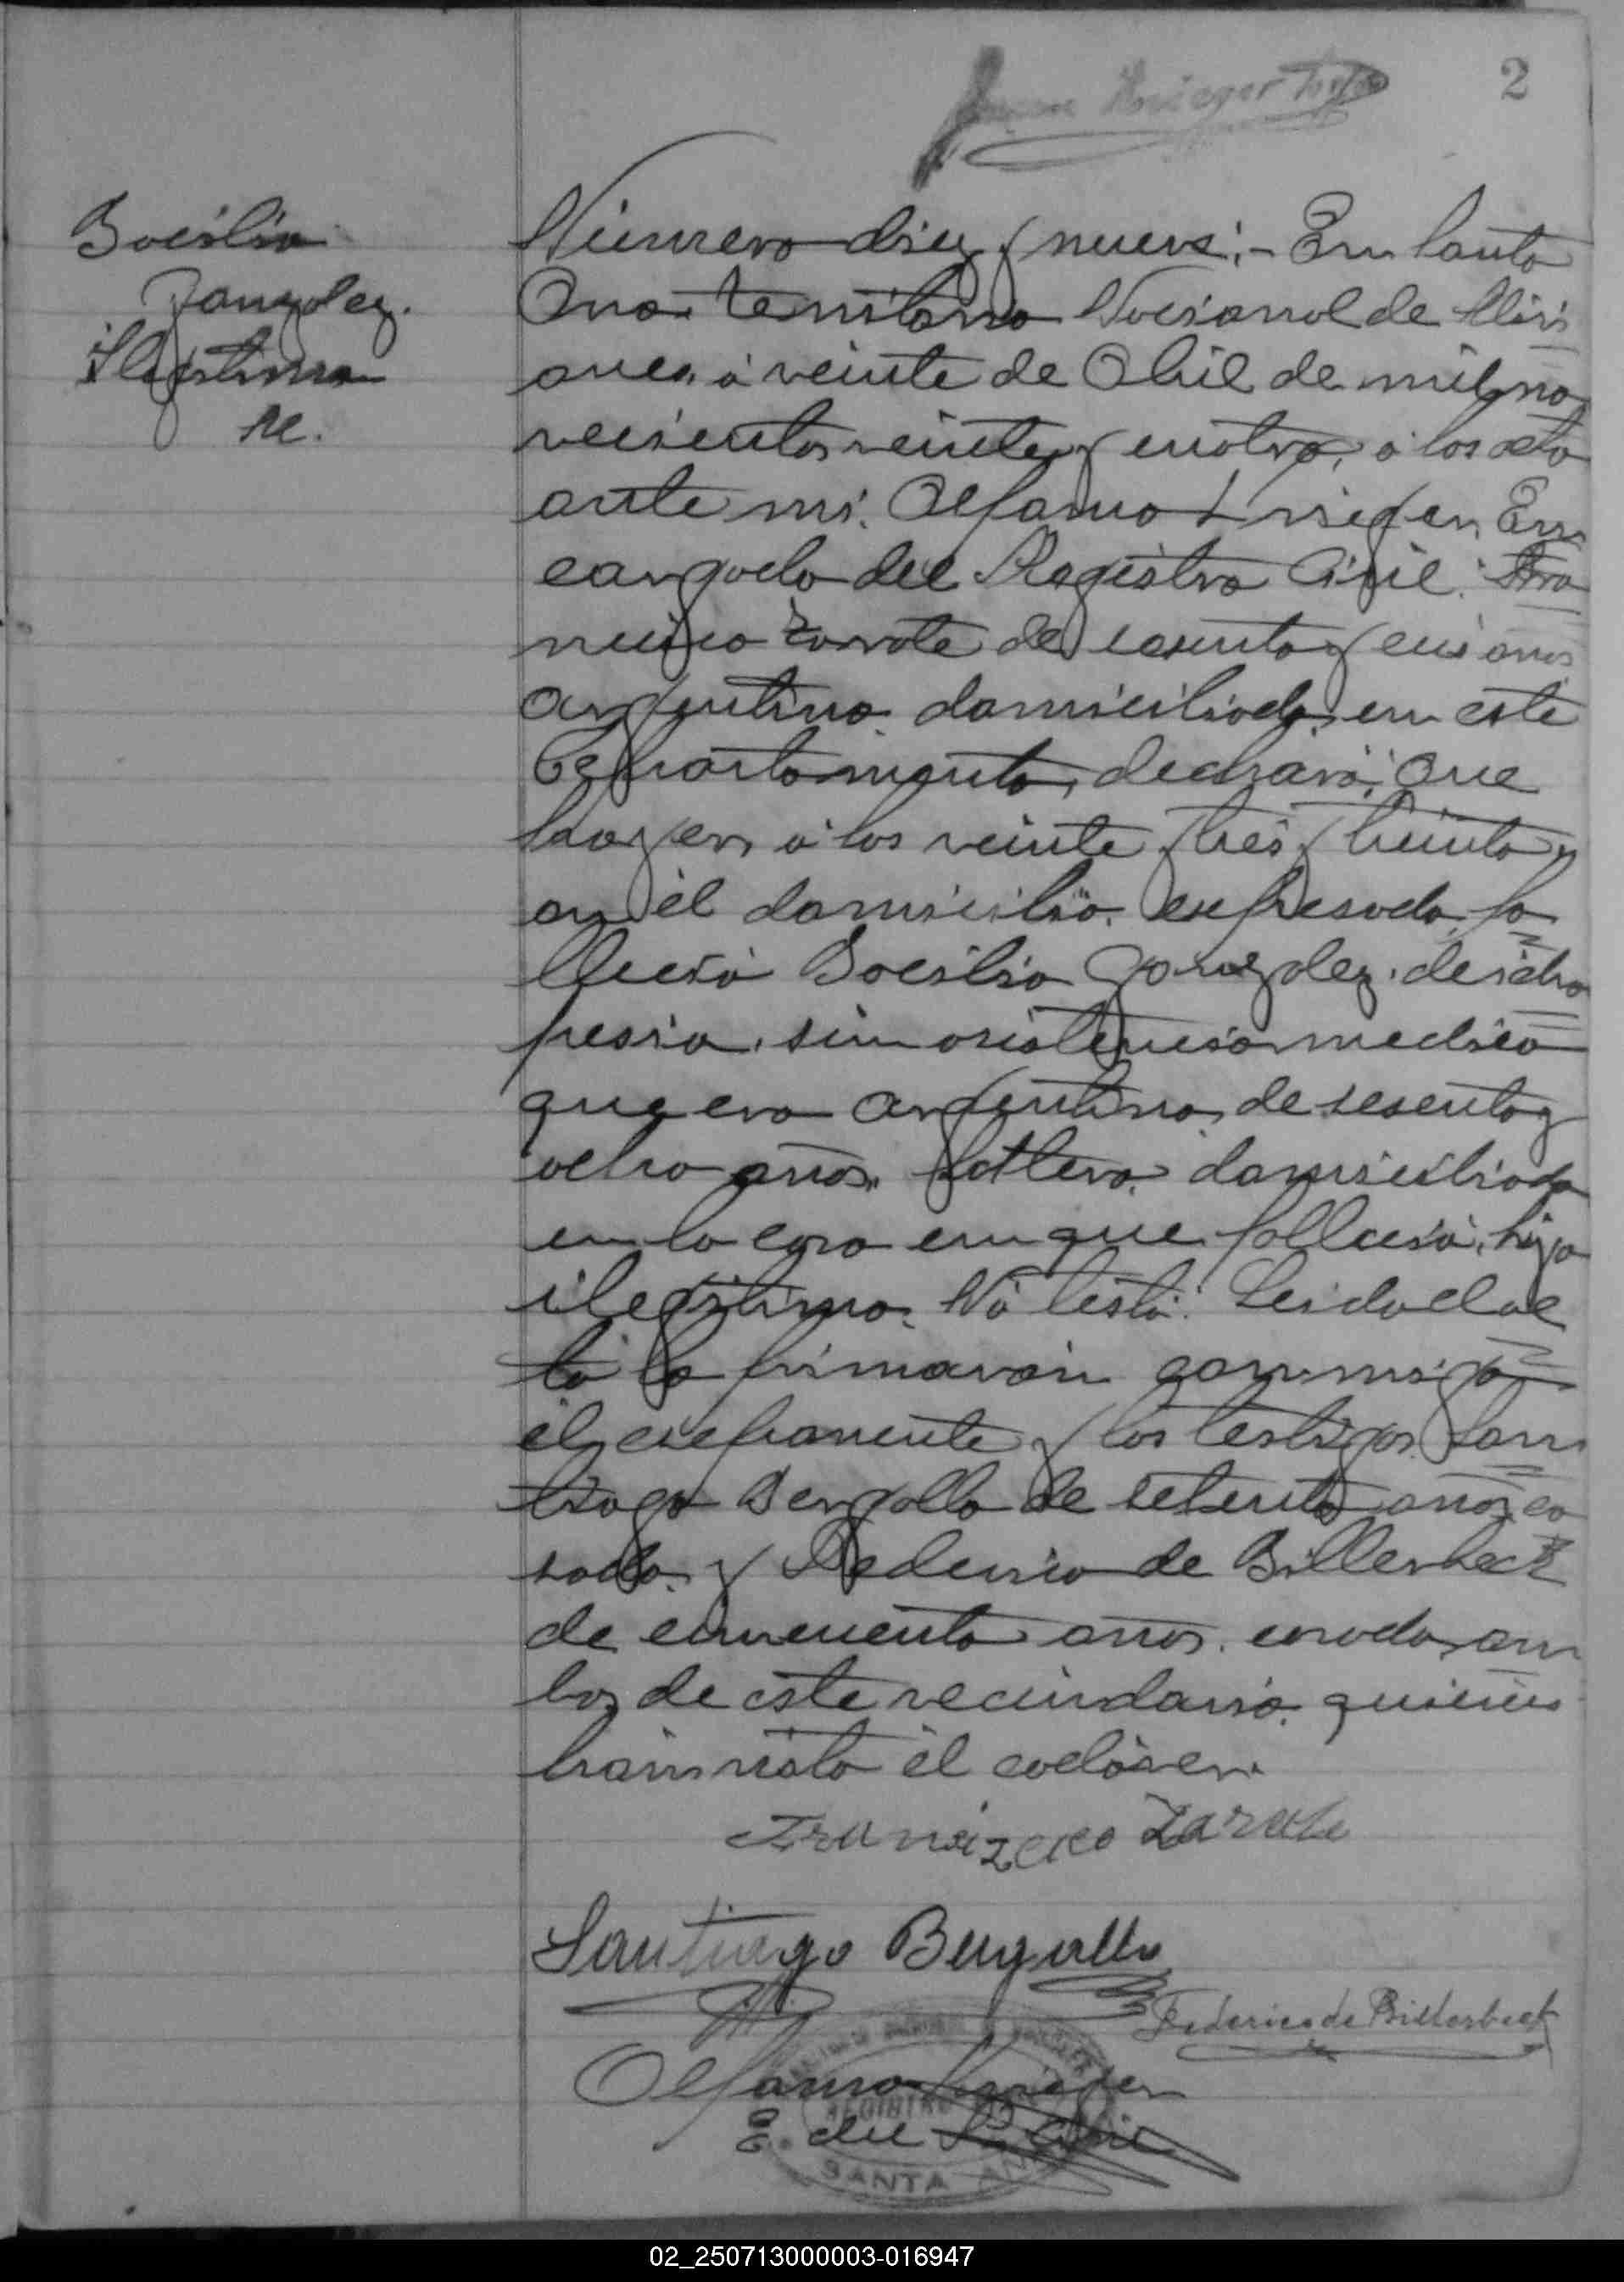 2
Basilia
Gonzalez.
Ilejitima
Número diez y nueve.- En Santa
Ana Territorio Nacional de Misio
nes, á veinte de Abril de mil no
vecientos veinte y cuatro, á las ocho
ante mi. Alfamo Krieger, En
cargado del Registro Civil. Fran
cisco Zarate de y años
argentino domiciliado en este
Departamento, declaró: Que
hayer á las veinte y tres y treinta
en él domicilio expresado fa
lleció Basilia Gonzalez de idro
pesia, sin asistencia medica
que era argentina, de sesenta y
ocho años. soltera. domiciliada
en la casa en que falleció, hija
ilegitima. No testó. Leida el ac
ta la firmaron conmigo
él exponente y los testigos San
tiago Bergallo de setenta años, ca
sado y Federico de Billerbeck
de cincuenta años. casado, am
bos de este vecindario. quienes
han visto él cadáver.
Francizcco Zarate
Santiago Bergallo
Federico de Billerbeck
Alfamo Krieger
E. del R. Civil
REGISTRO
SANTA ANA
02_250713000003-016947